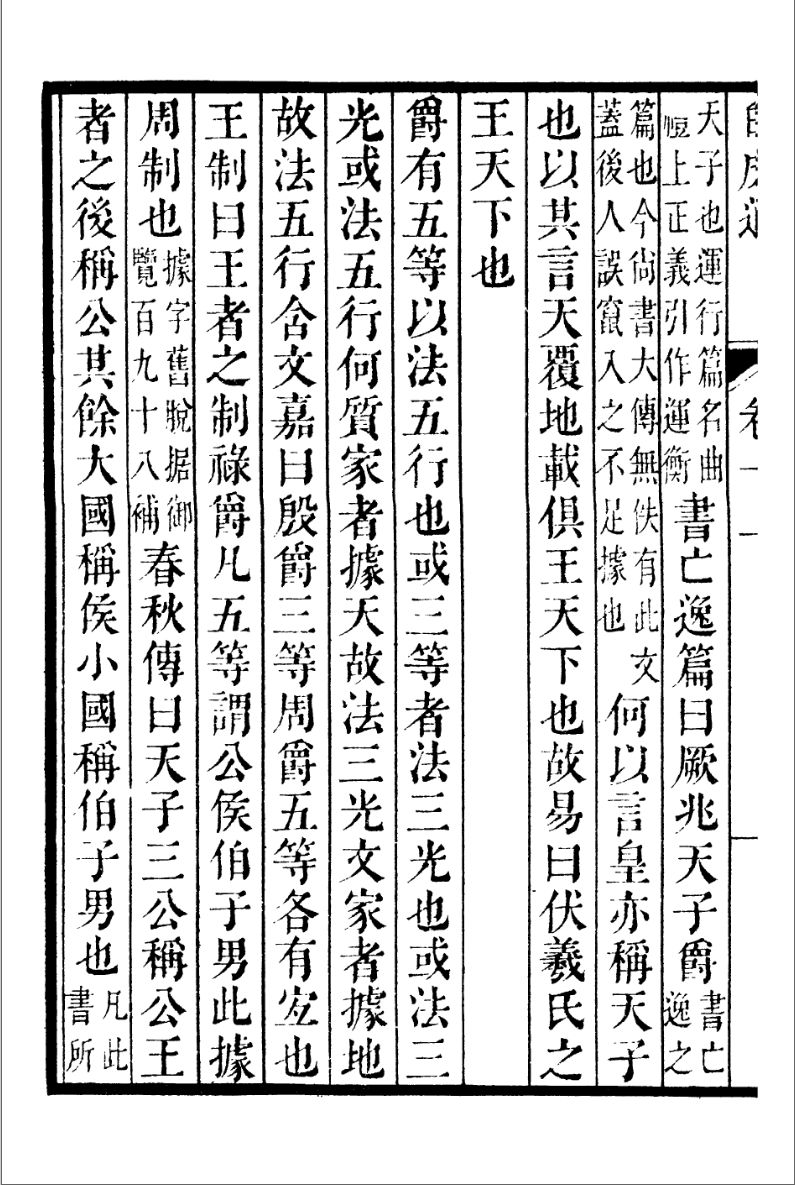 天子也運行篇名曲禮上正義引作運衡書亡逸篇曰厥兆天子爵書亡逸之
篇也今尚書大傳無佚有此文蓋後人誤竄入之不足據也何以言皇亦稱天子
也以其言天覆地載俱王天下也故易曰伏羲氏之
王天下也
爵有五等以法五行也或三等者法三光也或法三
光或法五行何質家者據天故法三光文家者據地
故法五行含文嘉曰殷爵三等周爵五等各有宐也
王制曰王者之制祿爵凡五等謂公侯伯子男此據
周制也據字舊脫据御覽百九十八補春秋傳曰天子三公稱公王
者之後稱公其餘大國稱侯小國稱伯子男也凡此書所